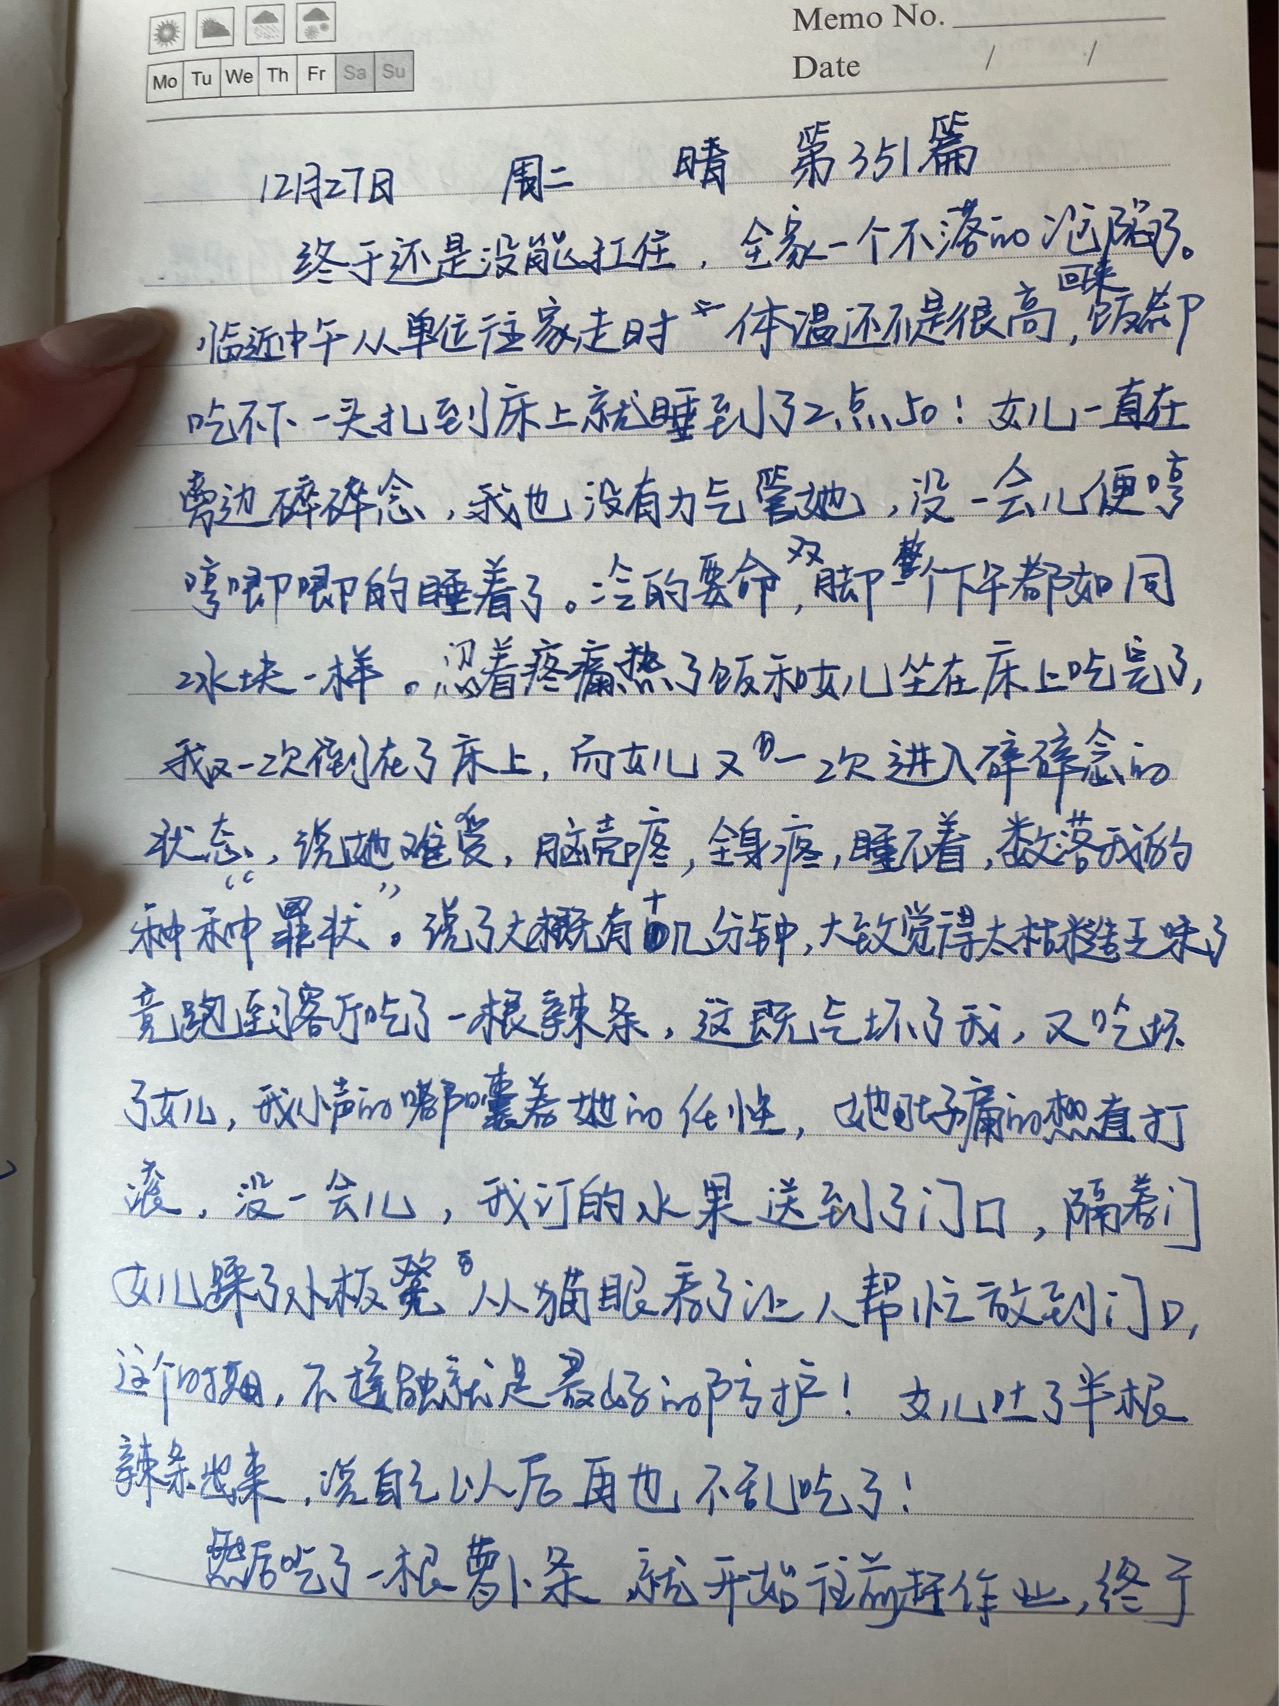 Memo No.
Mo Tu We Th Fr Sa Su
Date / /
12月27日 周二 晴 第351篇
终于还是没能扛住，全家一个不落的沦陷了。
临近中午从单位往家走时 体温还不是很高，回来饭都
吃不下一头扎到床上就睡到了2点50！女儿一直在
旁边碎碎念，我也没有力气管她，没一会儿便哼
哼唧唧的睡着了。冷的要命，双脚整个下午都如同
冰块一样。忍着疼痛热了饭和女儿坐在床上吃完了，
我又一次倒在了床上，而女儿又一次进入碎碎念的
状态，说她难受，脑壳疼，全身疼，睡不着，数落我的
种种“罪状”。说了大概有十几分钟，大致觉得太枯燥乏味了
竟跑到客厅吃了一根辣条，这既气坏了我，又吃坏
了女儿，我小声的嘟囔着她的任性，她肚子痛的想直打
滚，没一会儿，我订的水果送到了门口，隔着门
女儿踩了小板凳 从猫眼看了让人帮忙放到门口，
这个时期，不接触就是最好的防护！女儿吐了半根
辣条出来，说自己以后再也不乱吃了！
然后吃了一根萝卜条 就开始往前赶作业，终于